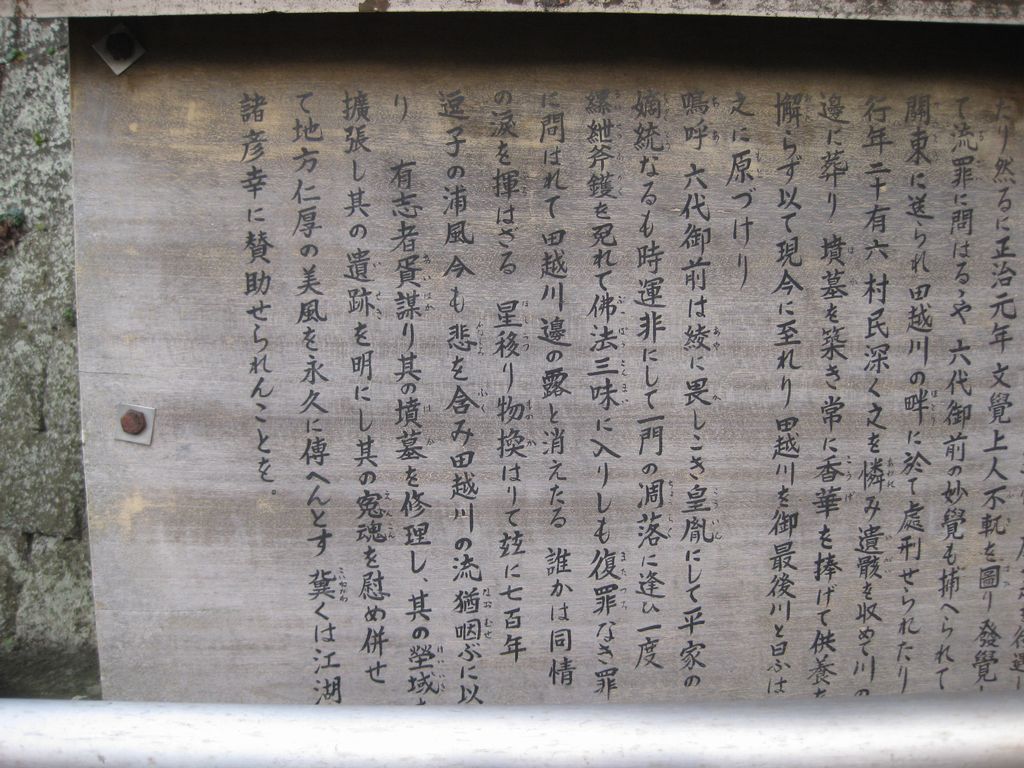 たり然るに正治元年文覺上人不軌を圖り發覺し
て流罪に問はるゝや六代御前の妙覺も捕へられて
關東に送られ田越川の畔に於て處刑せられたり
行年二十有六 村民深く之を憐み遺骸を収めて川の
邊に葬り 墳墓を築き常に香華を捧げて供養を
懈らず以て現今に至れり田越川を御最後川と曰ふは
之に原づけり
嗚呼 六代御前は綾に畏しこき皇胤にして平家の
嫡統なるも時運非にして一門の凋落に逢ひ一度
縲紲斧鑊を免れて佛法三味に入りしも復罪なき罪
に問はれて田越川邊の露と消えたる 誰かは同情
の涙を揮はざる 星移り物換はりて玆に七百年
逗子の浦風今も悲を含み田越川の流猶咽ぶに以
り 有志者胥謀り其の墳墓を修理し、其の塋域を
擴張し其の遺跡を明にし其の寃魂を慰め併せ
て地方仁厚の美風を永久に傳へんとす 冀くは江湖
諸彦幸に賛助せられんことを。